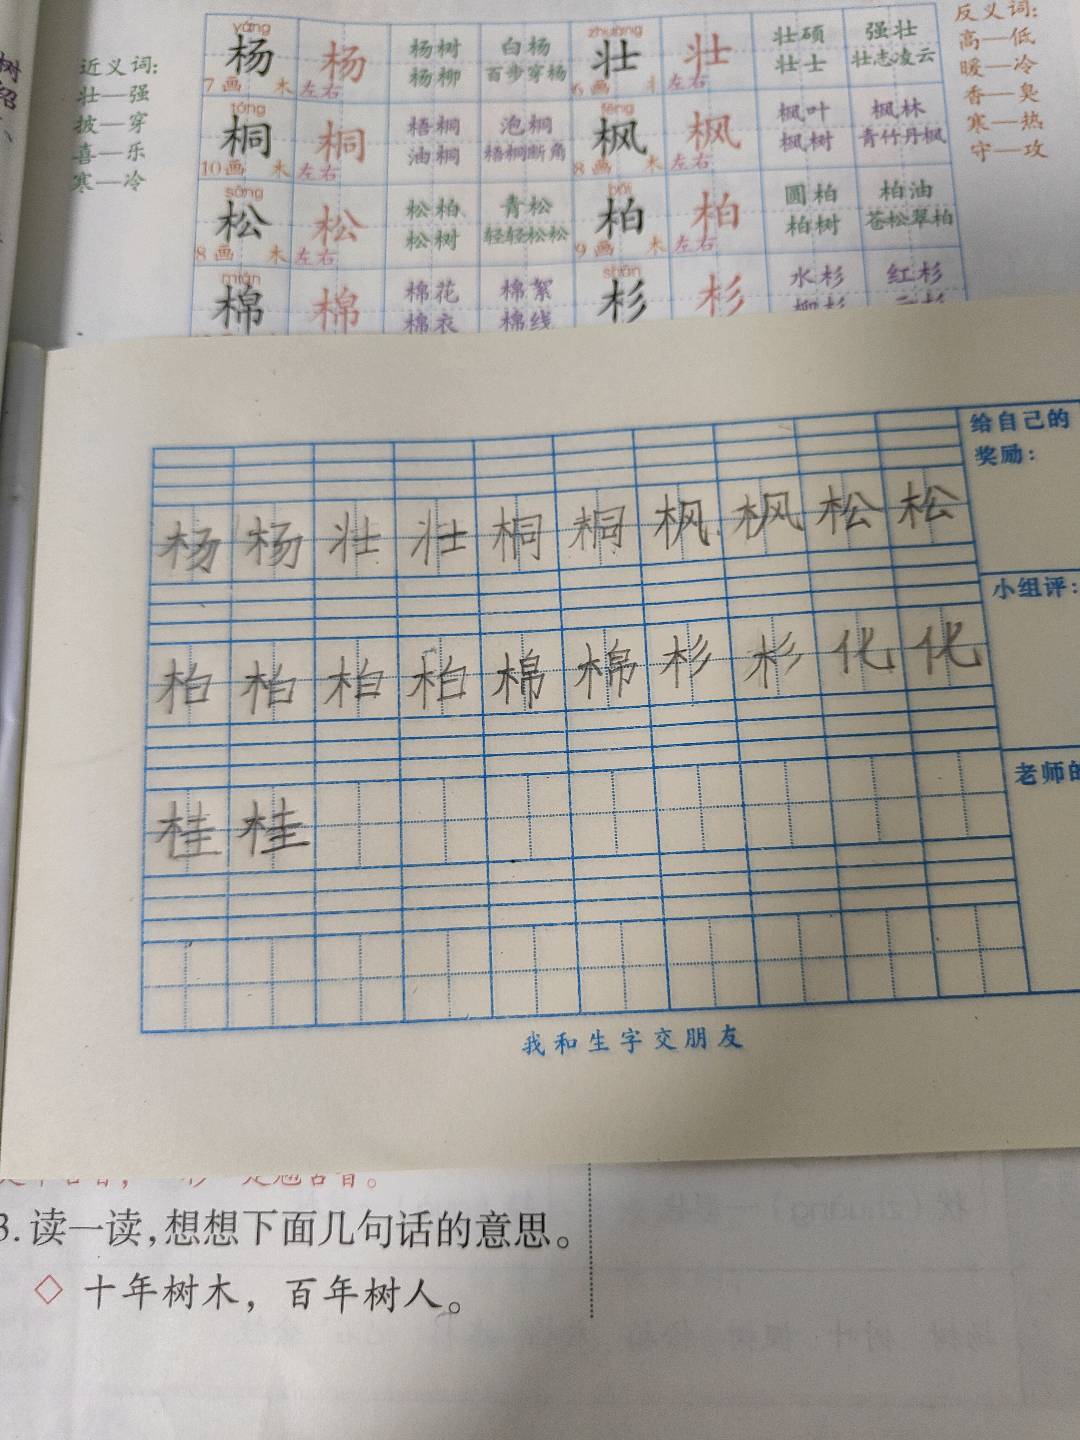 近义词:
壮—强
披—穿
喜—乐
寒—冷
yáng
杨 杨 杨树 白杨
7画 木 左右 杨柳 百步穿杨
zhuàng
壮 壮 壮硕 强壮
6画 左右 壮士 壮志凌云
反义词:
高—低
暖—冷
香—臭
寒—热
守—攻
tóng
桐 桐 梧桐 泡桐
10画 木 左右 油桐 梧桐断角
fēng
枫 枫 枫叶 枫林
8画 木 左右 枫树 青竹丹枫
sōng
松 松 松柏 青松
8画 木 左右 松树 轻轻松松
bǎi
柏 柏 圆柏 柏油
9画 木 左右 柏树 苍松翠柏
mián
棉 棉 棉花 棉絮
棉衣 棉线
shān
杉 杉 水杉 红杉
给自己的
奖励:
杨 杨 壮 壮 桐 桐 枫 枫 松 松
小组评:
柏 柏 柏 柏 棉 棉 杉 杉 化 化
老师的
桂 桂
我和生字交朋友
3.读一读,想想下面几句话的意思。
◇ 十年树木，百年树人。